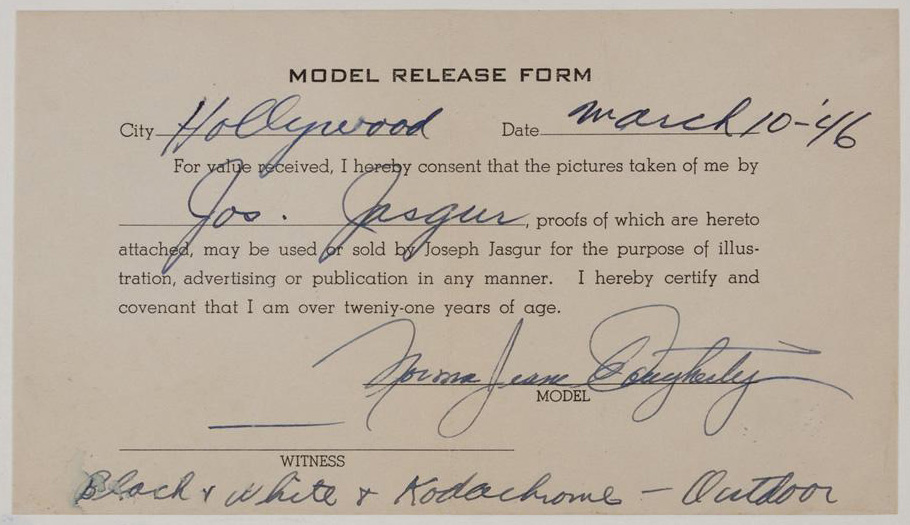 MODEL RELEASE FORM
City Hollywood Date March 10-'46
For value received, I hereby consent that the pictures taken of me by
Jos. Jasgur, proofs of which are hereto
attached, may be used or sold by Joseph Jasgur for the purpose of illus-
tration, advertising or publication in any manner. I hereby certify and
covenant that I am over twenty-one years of age.
Norma Jeane Dougherty
MODEL
WITNESS
Black & White & Kodachrome - Outdoor